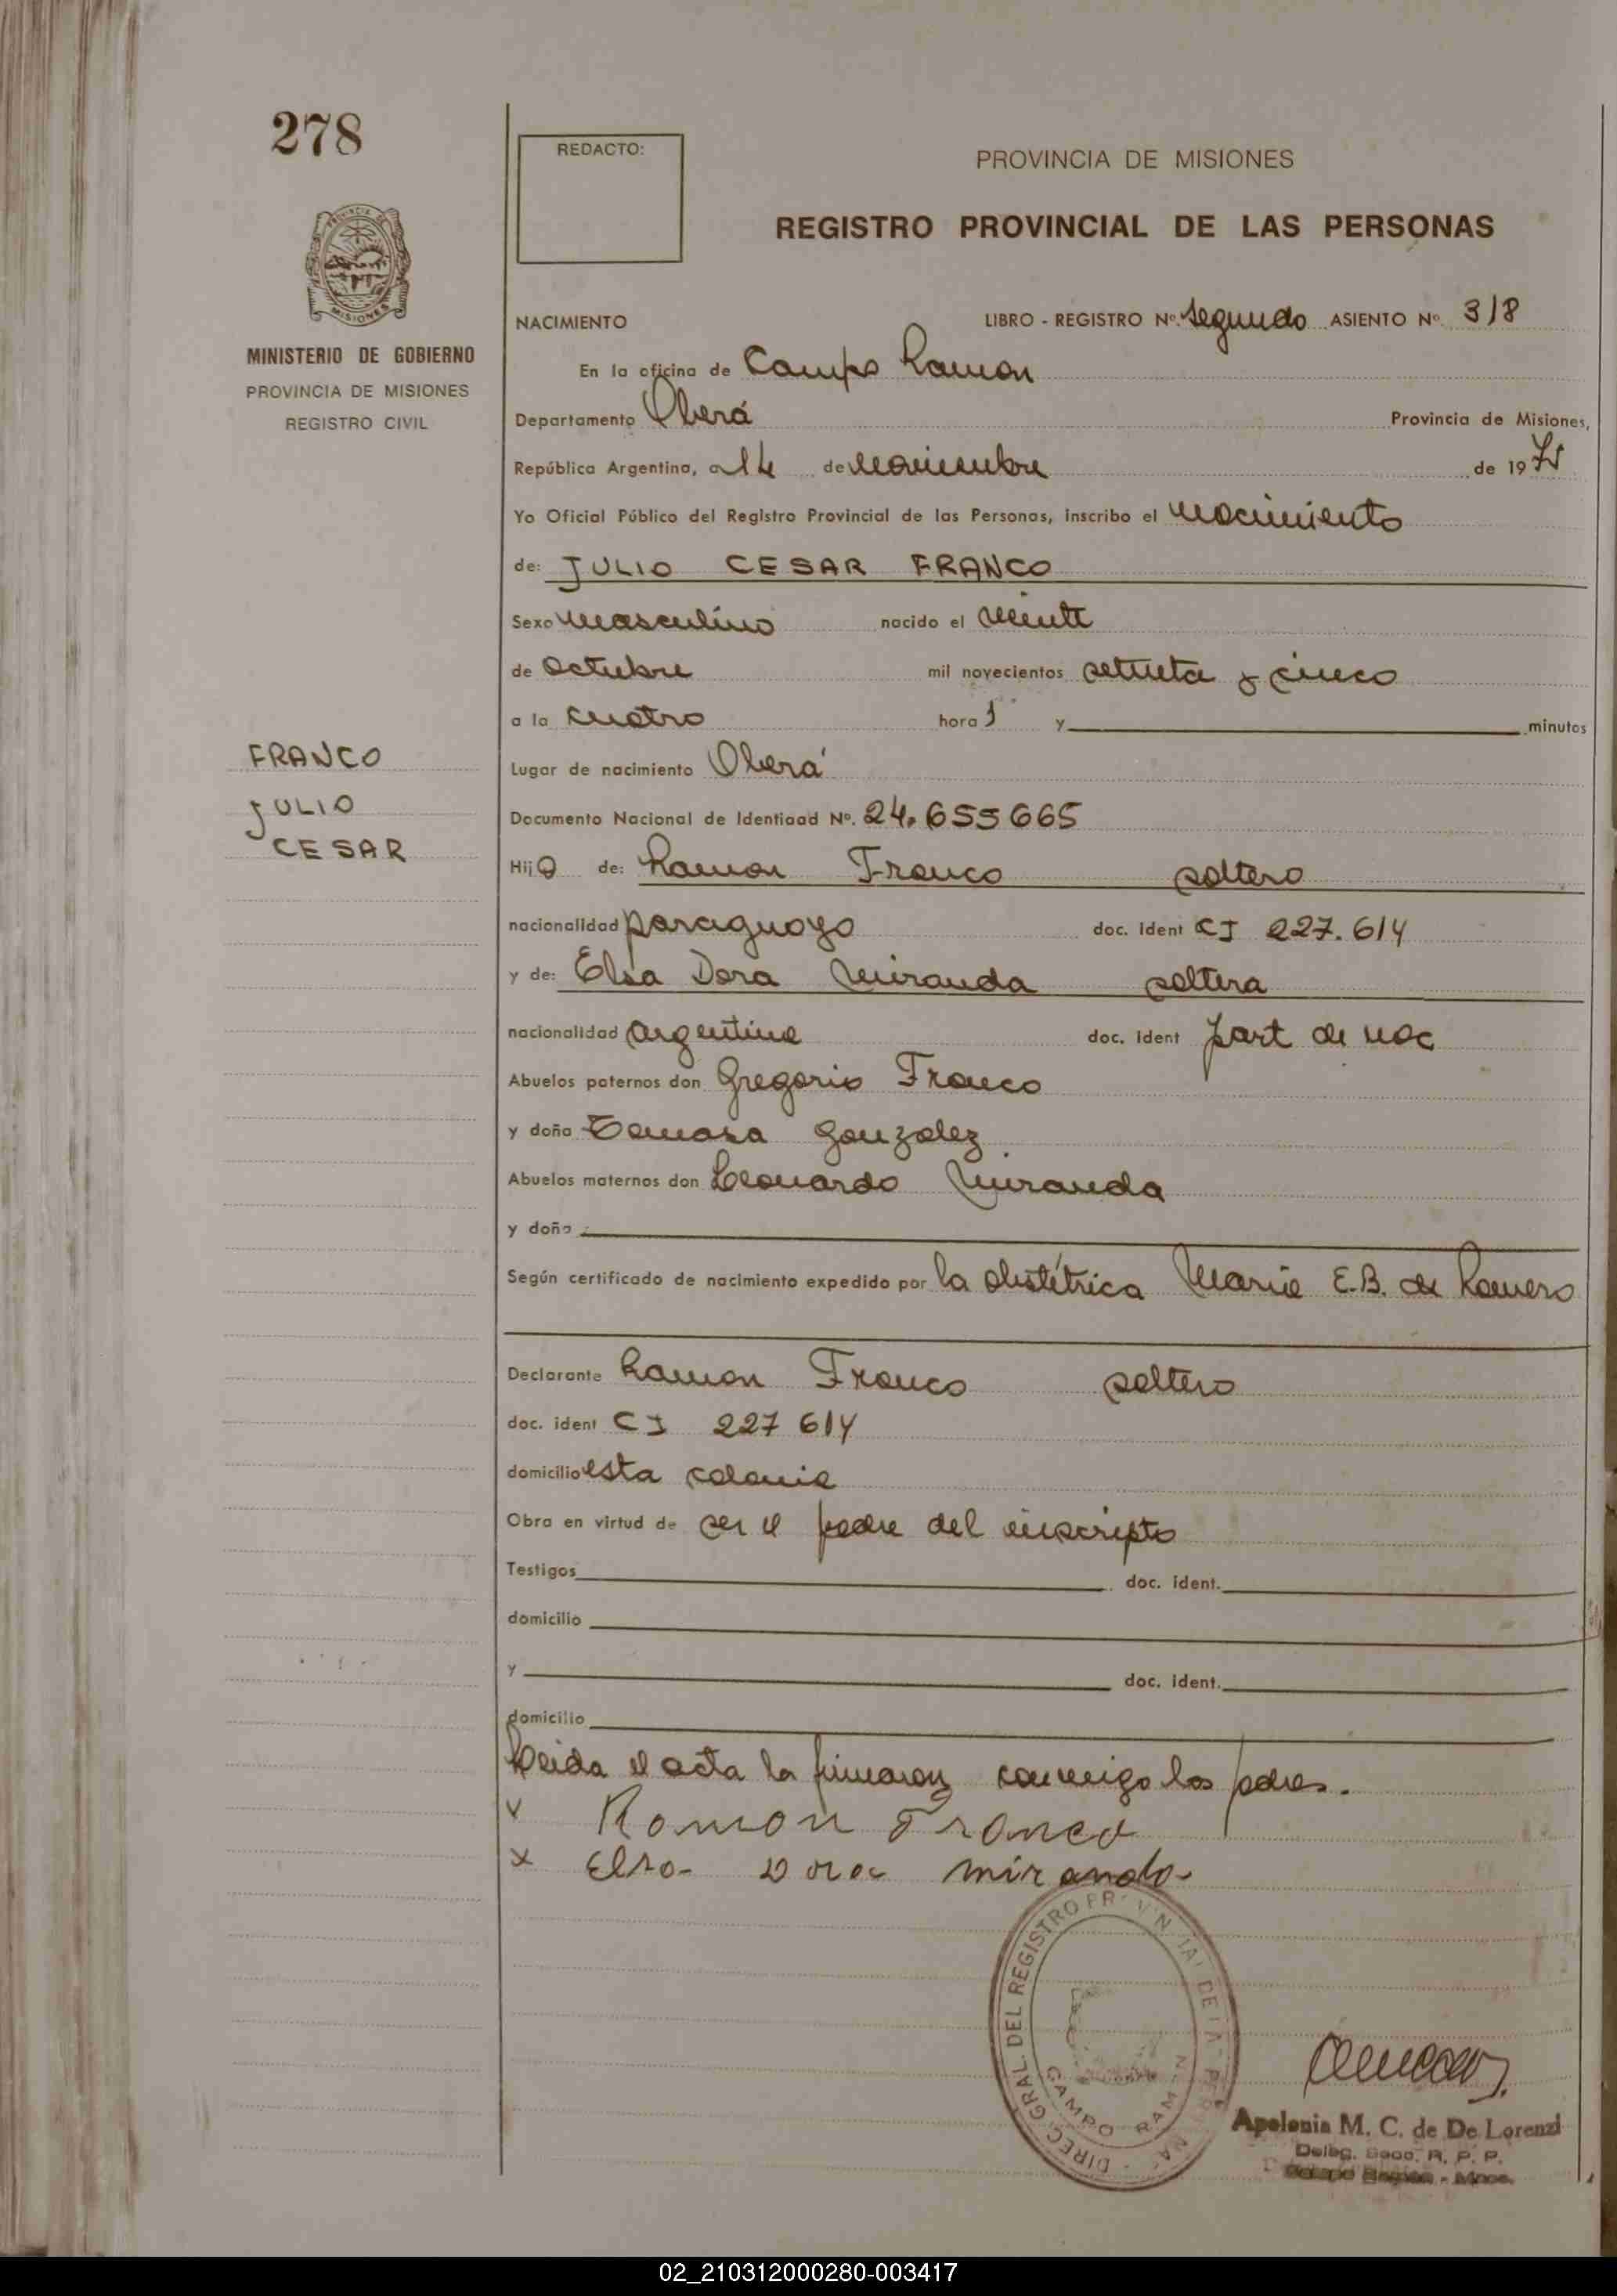 278
REDACTO:
PROVINCIA DE MISIONES
REGISTRO PROVINCIAL DE LAS PERSONAS
MISIONES
MINISTERIO DE GOBIERNO
PROVINCIA DE MISIONES
REGISTRO CIVIL
NACIMIENTO LIBRO - REGISTRO Nº. segundo ASIENTO Nº 318
En la oficina de Campo Ramon
Departamento Oberá Provincia de Misiones,
República Argentina, a 14 de noviembre de 1975
Yo Oficial Público del Registro Provincial de las Personas, inscribo el nacimiento
de: JULIO CESAR FRANCO
Sexo masculino nacido el veinte
de octubre mil novecientos setenta y cinco
a la cuatro hora s y minutos
FRANCO
JULIO
CESAR
Lugar de nacimiento Oberá
Documento Nacional de Identidad Nº. 24.655665
Hijo de: Ramon Franco soltero
nacionalidad paraguayo doc. ident CI 227.614
y de: Elsa Dora Miranda soltera
nacionalidad argentina doc. ident part de nac
Abuelos paternos don Gregorio Franco
y doña Tomasa Gonzalez
Abuelos maternos don Leonardo Miranda
y doña
Según certificado de nacimiento expedido por la obstétrica Maria E.B. de Romero
Declarante Ramon Franco soltero
doc. ident CI 227 614
domicilio esta colonia
Obra en virtud de ser el padre del inscripto
Testigos doc. ident.
domicilio
y doc. ident.
domicilio
Leida el acta la firmaron conmigo los padres.
x Ramon Franco
x Elsa Dora miranda
DIREC. GRAL. DEL REGISTRO PROVINCIAL DE LA PERSONA
CAMPO RAMON
Apolonia M. C. de De Lorenzi
Deleg. Secc. R. P. P.
02_210312000280-003417